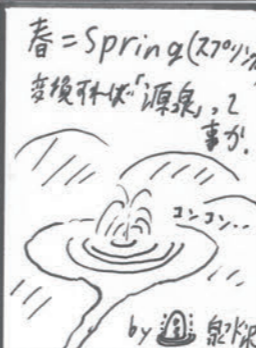 春=Spring(スプリング
変換すれば「源泉」って
事か.
コンコン..
by 泉水